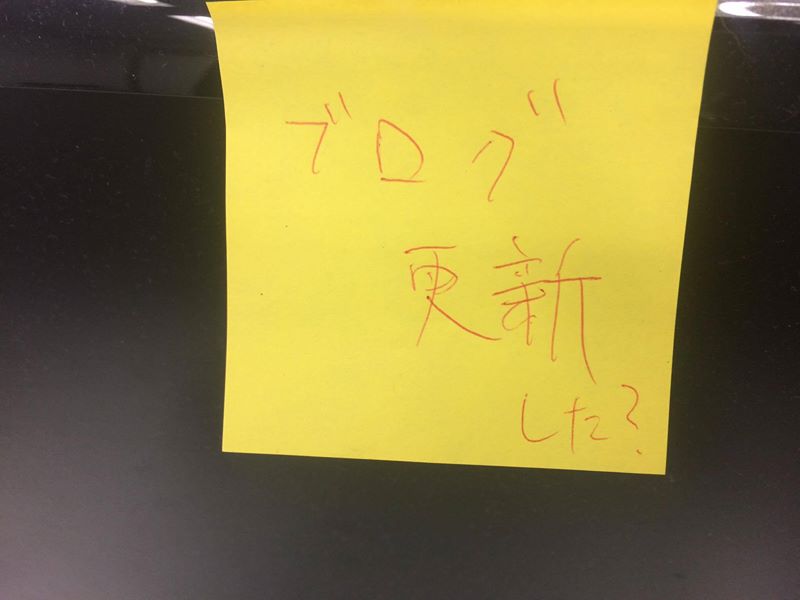 ブログ
更新
した?